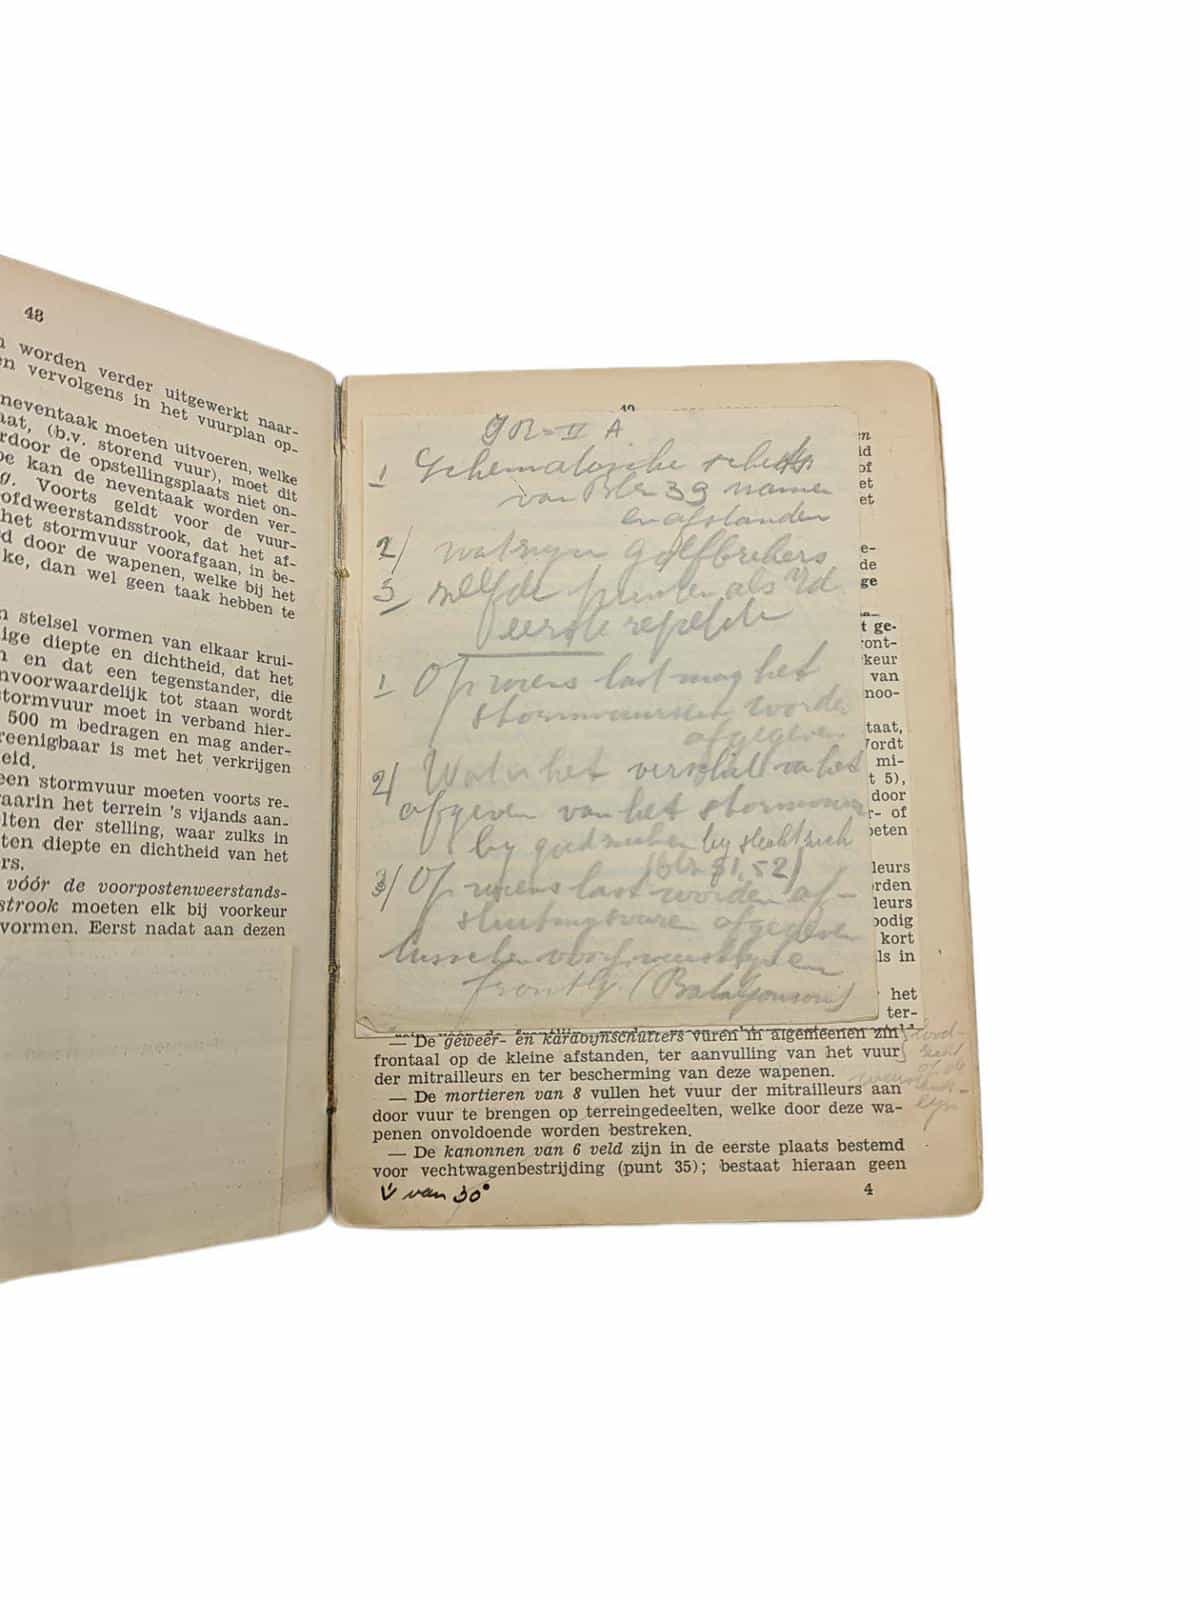 48
n worden verder uitgewerkt naar-
en vervolgens in het vuurplan op-
neventaak moeten uitvoeren, welke
aat, (b.v. storend vuur), moet dit
rdoor de opstellingsplaats niet on-
oe kan de neventaak worden ver-
g. Voorts geldt voor de vuur-
ofdweerstandsstrook, dat het af-
het stormvuur voorafgaan, in be-
d door de wapenen, welke bij het
ke, dan wel geen taak hebben te
n stelsel vormen van elkaar krui-
ige diepte en dichtheid, dat het
n en dat een tegenstander, die
nvoorwaardelijk tot staan wordt
stormvuur moet in verband hier-
500 m bedragen en mag ander-
reenigbaar is met het verkrijgen
eid.
een stormvuur moeten voorts re-
aarin het terrein 's vijands aan-
lten der stelling, waar zulks in
ten diepte en dichtheid van het
rs.
vóór de voorpostenweerstands-
strook moeten elk bij voorkeur
vormen. Eerst nadat aan dezen
II A
1 Schematische schets
van Blz 39 namen
en afstanden
2/ wat zijn golfbrekers
3 zelfde punten als
eerste
1 Op wiens last mag het
worden
afgegeven
2/ Wat is het verschil het
afgeven van het
by goed by slecht zich
(blz 51, 52)
3/ Op wiens last worden af-
sluitingsvuren afgegeven
tusschen en
ge-
ront-
keur
van
noo-
taat,
Wordt
mi-
t 5),
door
r- of
oeten
leurs
orden
leurs
oodig
kort
als in
het
ter-
— De geweer- en karabijnschutters vuren in algemeenen zin
frontaal op de kleine afstanden, ter aanvulling van het vuur
der mitrailleurs en ter bescherming van deze wapenen.
— De mortieren van 8 vullen het vuur der mitrailleurs aan
door vuur te brengen op terreingedeelten, welke door deze wa-
penen onvoldoende worden bestreken.
— De kanonnen van 6 veld zijn in de eerste plaats bestemd
voor vechtwagenbestrijding (punt 35); bestaat hieraan geen
van 30°
4